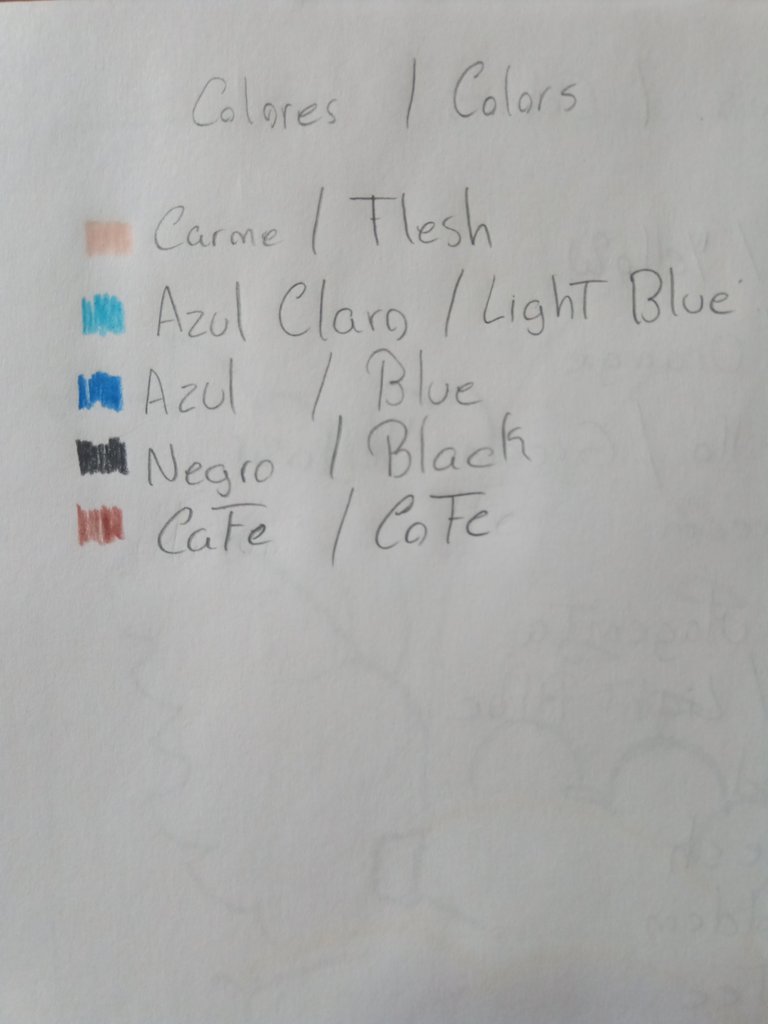 Colores / Colors
Carme / Flesh
Azul Claro / Light Blue
Azul / Blue
Negro / Black
Cafe / Cofe